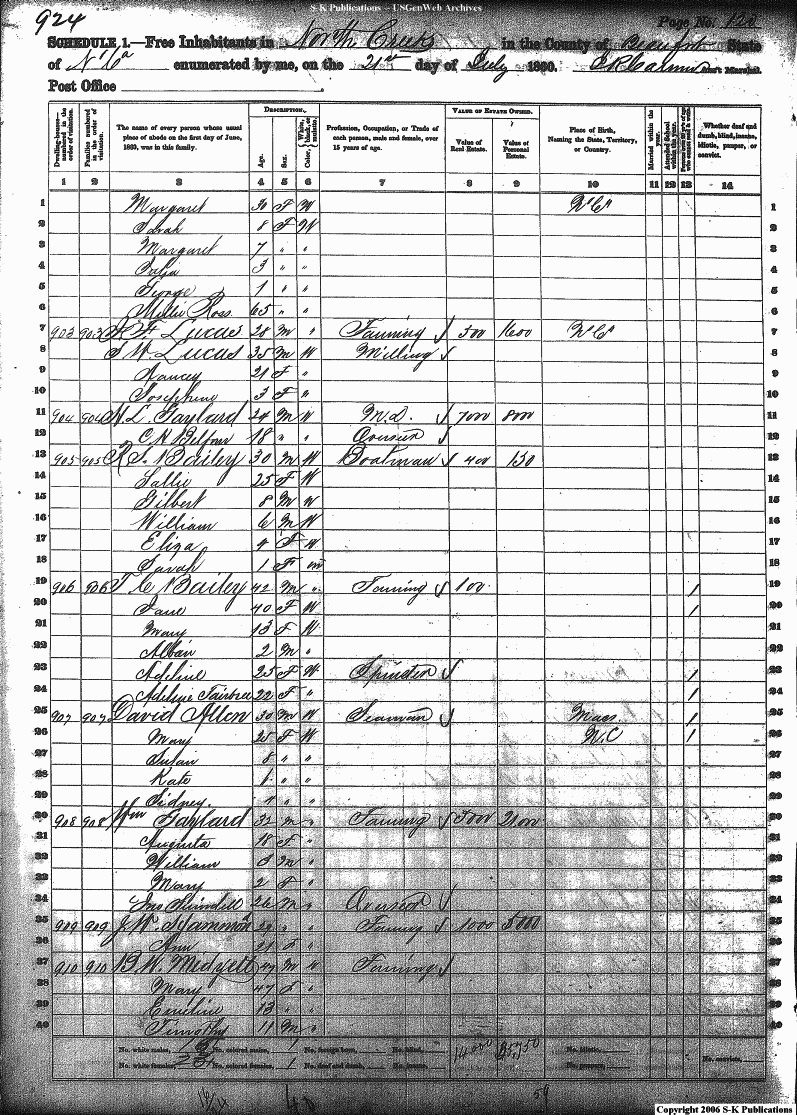 S-K Publications – USGenWeb Archives
924
Page No. 120
SCHEDULE 1.—Free Inhabitants in North Creek in the County of Beaufort State
of N. Ca enumerated by me, on the 21st day of July 1860. Ass't Marshal.
Post Office
Dwelling-houses—numbered in the order of visitation.
Families numbered in the order of visitation.
The name of every person whose usual place of abode on the first day of June, 1860, was in this family.
DESCRIPTION.
Age.
Sex.
Color, White, black, or mulatto.
Profession, Occupation, or Trade of each person, male and female, over 15 years of age.
VALUE OF ESTATE OWNED.
Value of Real Estate.
Value of Personal Estate.
Place of Birth, Naming the State, Territory, or Country.
Married within the year.
Attended School within the year.
Whether deaf and dumb, blind, insane, idiotic, pauper, or convict.
1 2 3 4 5 6 7 8 9 10 11 12 13 14
1 Margaret 30 F W N Ca 1
2 Sarah 8 F W 2
3 Margaret 7 " " 3
4 Julia 3 " " 4
5 George 1 " " 5
6 Millie Ross 65 " " 6
7 903 903 Lucas 28 M " Farming 500 1600 N Ca 7
8 Lucas 35 M W Milling 8
9 Nancy 21 F " 9
10 Josephine 3 F " 10
11 904 904 H. L. Gaylard 24 M W M.D. 7000 800 11
12 18 " " Overseer 12
13 905 905 R. S. Bailey 30 M W Boatman 400 150 13
14 Sallie 25 F W 14
15 Gilbert 8 M W 15
16 William 6 M W 16
17 Eliza 4 F W 17
18 Sarah 1 F 18
19 906 906 T. C. Bailey 42 M " Farming 100 1 19
20 Jane 40 F W 1 20
21 Mary 13 F W 21
22 2 M " 22
23 Adeline 25 F W Spinster 1 23
24 Adeline 22 F " 1 24
25 907 907 David Allen 30 M W Seaman Mass. 1 25
26 Mary 25 F W N.C 1 26
27 Susan 8 " " 27
28 Kate 6 " " 28
29 Sidney " " 29
30 908 908 Wm Gaylard 32 M " Farming 5000 2100 30
31 Augusta 18 F " 31
32 William 3 M " 32
33 Mary 2 F " 33
34 Jno Swindell 26 M " Overseer 34
35 909 909 J. W. Hammon 29 " " Farming 1000 5000 35
36 Ann 21 F " 36
37 910 910 B. W. Midyett 47 M W Farming 37
38 Mary 47 F " 38
39 Emeline 13 " " 39
40 Timothy 11 M " 40
No. white males, No. colored males, 1 No. foreign born, No. blind, 14000 25,750 No. idiotic,
No. white females, No. colored females, 1 No. deaf and dumb, No. insane, No. paupers, No. convicts,
59
Copyright 2006 S-K Publications